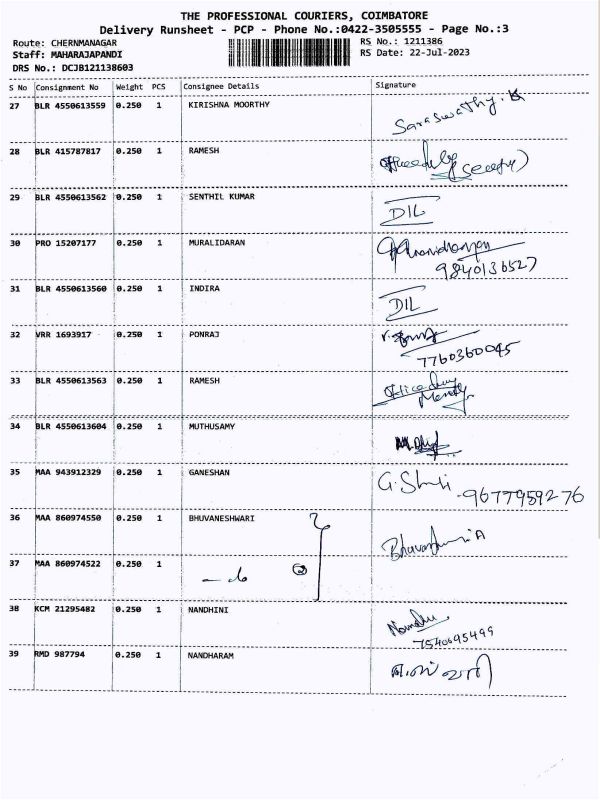 THE PROFESSIONAL COURIERS, COIMBATORE
Delivery Runsheet - PCP - Phone No.:0422-3505555 - Page No.:3
Route: CHERNMANAGAR RS No.: 1211386
Staff: MAHARAJAPANDI RS Date: 22-Jul-2023
DRS No.: DCJB121138603
S No Consignment No Weight PCS Consignee Details Signature
27 BLR 4550613559 0.250 1 KIRISHNA MOORTHY Saraswathy. K
28 BLR 415787817 0.250 1 RAMESH
29 BLR 4550613562 0.250 1 SENTHIL KUMAR DIL
30 PRO 15207177 0.250 1 MURALIDARAN
9840136527
31 BLR 4550613560 0.250 1 INDIRA DIL
32 VRR 1693917 0.250 1 PONRAJ
7760360045
33 BLR 4550613563 0.250 1 RAMESH
34 BLR 4550613604 0.250 1 MUTHUSAMY
35 MAA 943912329 0.250 1 GANESHAN
9677959276
36 MAA 860974550 0.250 1 BHUVANESHWARI
37 MAA 860974522 0.250 1
38 KCM 21295482 0.250 1 NANDHINI
7540695499
39 RMD 987794 0.250 1 NANDHARAM